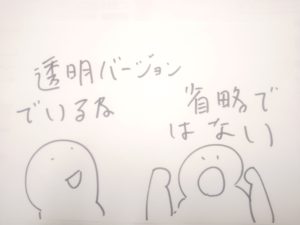 透明バージョン
でいるな
省略で
はない